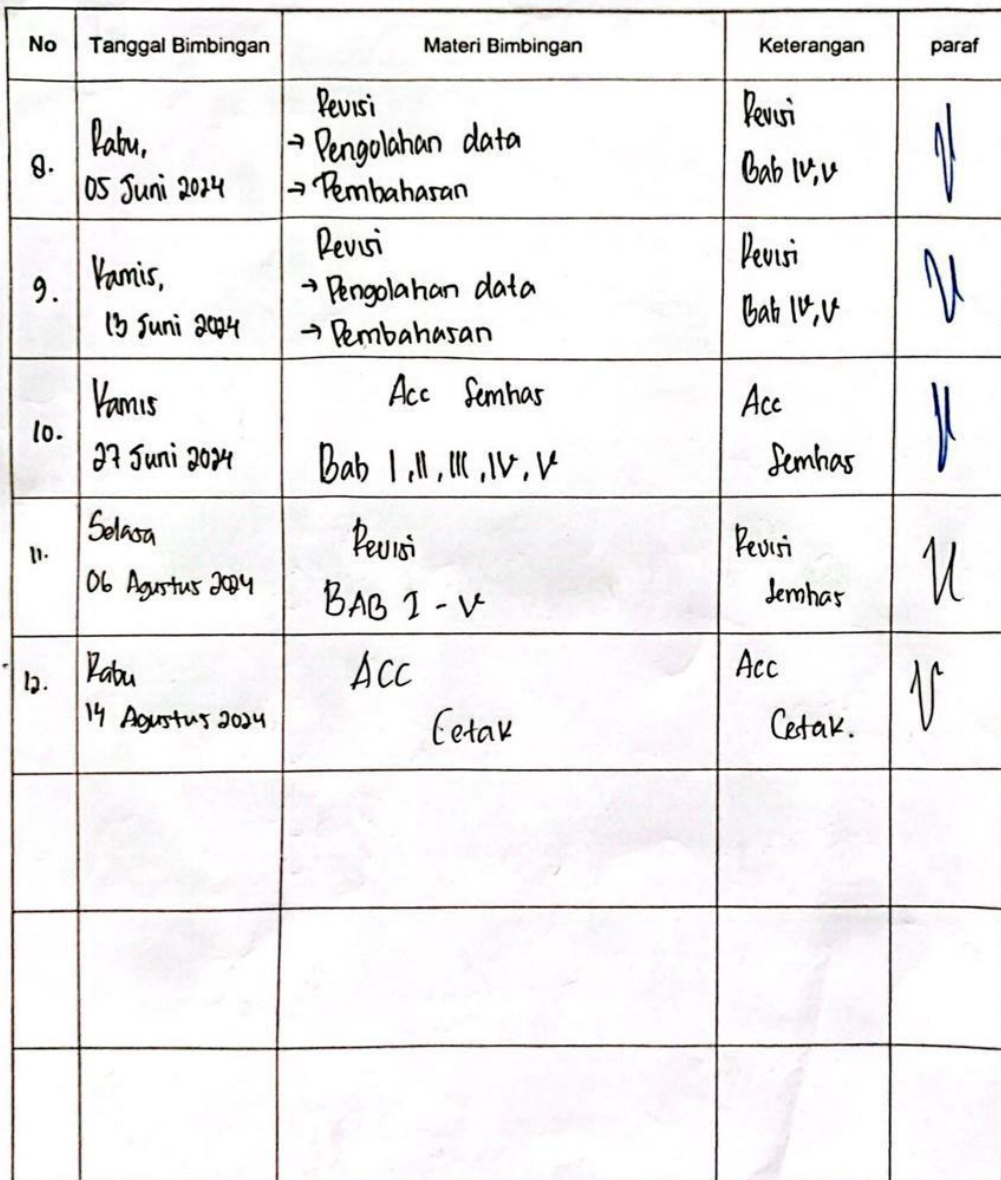 No Tanggal Bimbingan Materi Bimbingan Keterangan paraf
8.
Rabu,
05 Juni 2024
Revisi
→ Pengolahan data
→ Pembahasan
Revisi
Bab IV, V
9.
Kamis,
13 Juni 2024
Revisi
→ Pengolahan data
→ Pembahasan
Revisi
Bab IV, V
10.
Kamis
27 Juni 2024
Acc Semhas
Bab I, II, III, IV, V
Acc
Semhas
11.
Selasa
06 Agustus 2024
Revisi
BAB I - V
Revisi
Semhas
12.
Rabu
14 Agustus 2024
ACC
Cetak
Acc
Cetak.